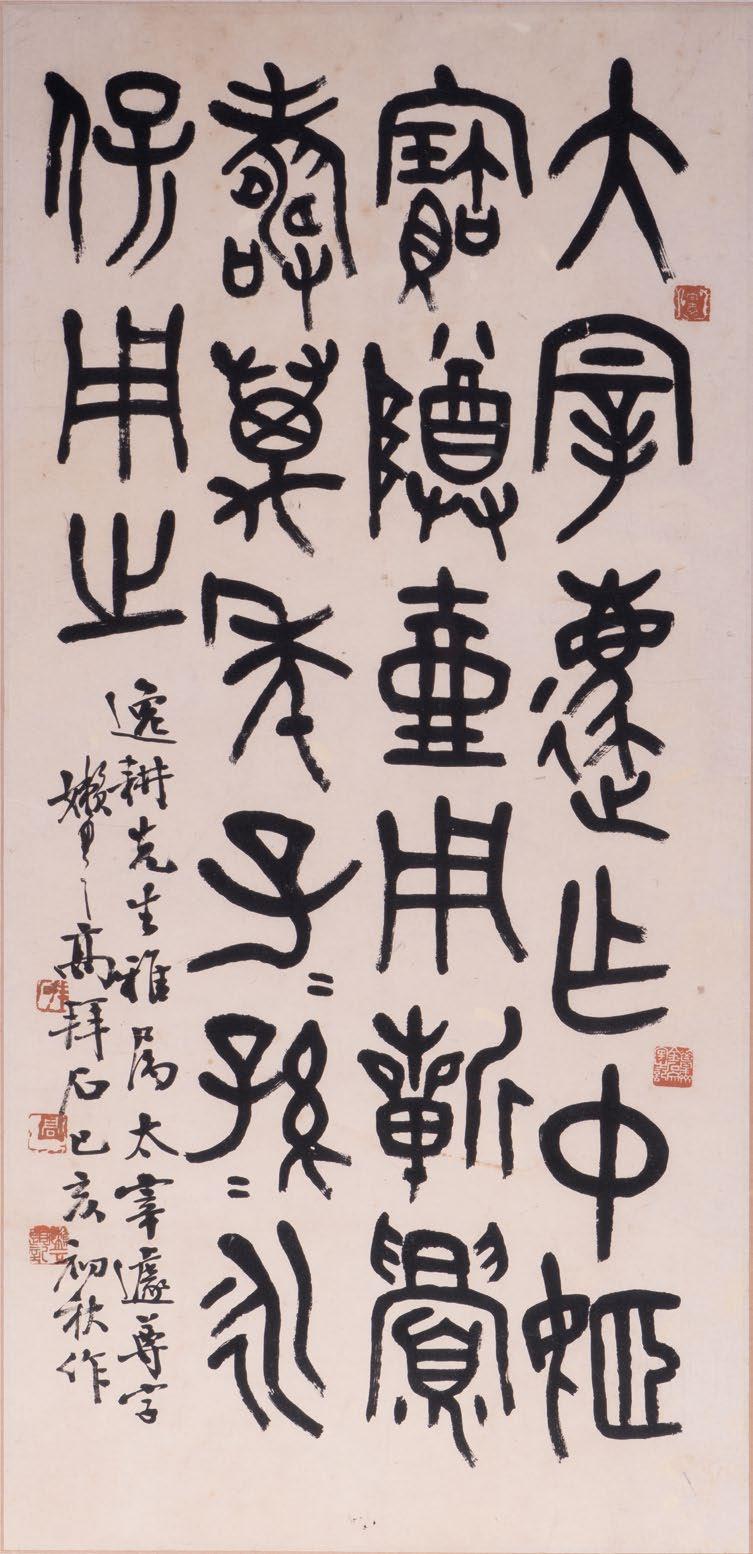 大宰乍中姬
寶尊壺用旂眉
壽萬年子=孫=永
保用之
逸耕先生雅屬太宰尊字
嬾高拜石己亥初秋作